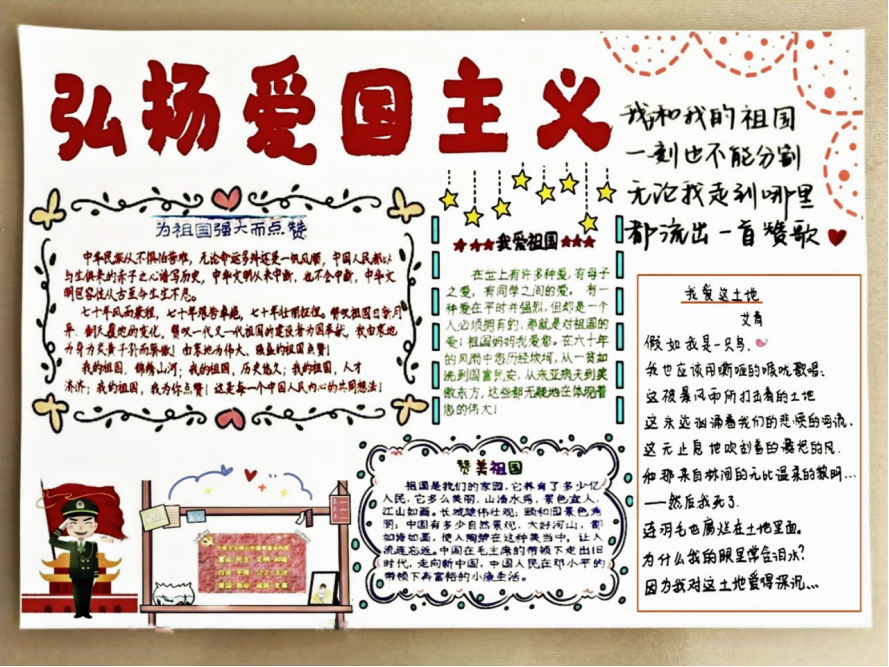 弘扬爱国主义
我和我的祖国
一刻也不能分割
无论我走到哪里
都流出一首赞歌
为祖国强大而点赞
中华民族从不惧怕苦难，无论命运多舛还是一帆风顺，中国人民都以
与生俱来的赤子之心谱写历史，中华文明从未中断，也不会中断，中华文
明包容性从古至今生生不息。
七十年风雨兼程，七十年艰苦卓绝，七十年壮丽征程。赞叹祖国日新月
异、翻天覆地的变化，赞叹一代又一代祖国的建设者为国奉献，我由衷地
为身为炎黄子孙而骄傲！由衷地为伟大、强盛的祖国点赞！
我的祖国，锦绣山河；我的祖国，历史悠久；我的祖国，人才
济济；我的祖国，我为你点赞！这是每一个中国人民内心的共同想法！
我爱祖国
在世上有许多种爱，有母子
之爱，有同学之间的爱，有一
种爱在平时并不强烈，但却是一个
人必须拥有的，那就是对祖国的
爱！祖国妈妈我爱您。在六十年
的风雨中您历经坎坷，从一贫如
洗到国富民安，从东亚病夫到笑
傲东方，这些都无疑地在体现着
您的伟大！
我爱这土地
艾青
假如我是一只鸟，
我也应该用嘶哑的喉咙歌唱：
这被暴风雨所打击着的土地
这永远汹涌着我们的悲愤的河流，
这无止息地吹刮着的激怒的风，
和那来自林间的无比温柔的黎明…
——然后我死了，
连羽毛也腐烂在土地里面。
为什么我的眼里常含泪水？
因为我对这土地爱得深沉…
赞美祖国
祖国是我们的家园，它养育了多少亿
人民，它多么美丽，山清水秀，景色宜人，
江山如画。长城雄伟壮观；颐和园景色秀
丽；中国有多少自然景观，大好河山，都
如诗如画，使人陶醉在这种美当中，让人
流连忘返。中国在毛主席的带领下走出旧
时代，走向新中国，中国人民在邓小平的
带领下奔富裕的小康生活。
富强 民主 文明 和谐
自由 平等 公正 法治
爱国 敬业 诚信 友善